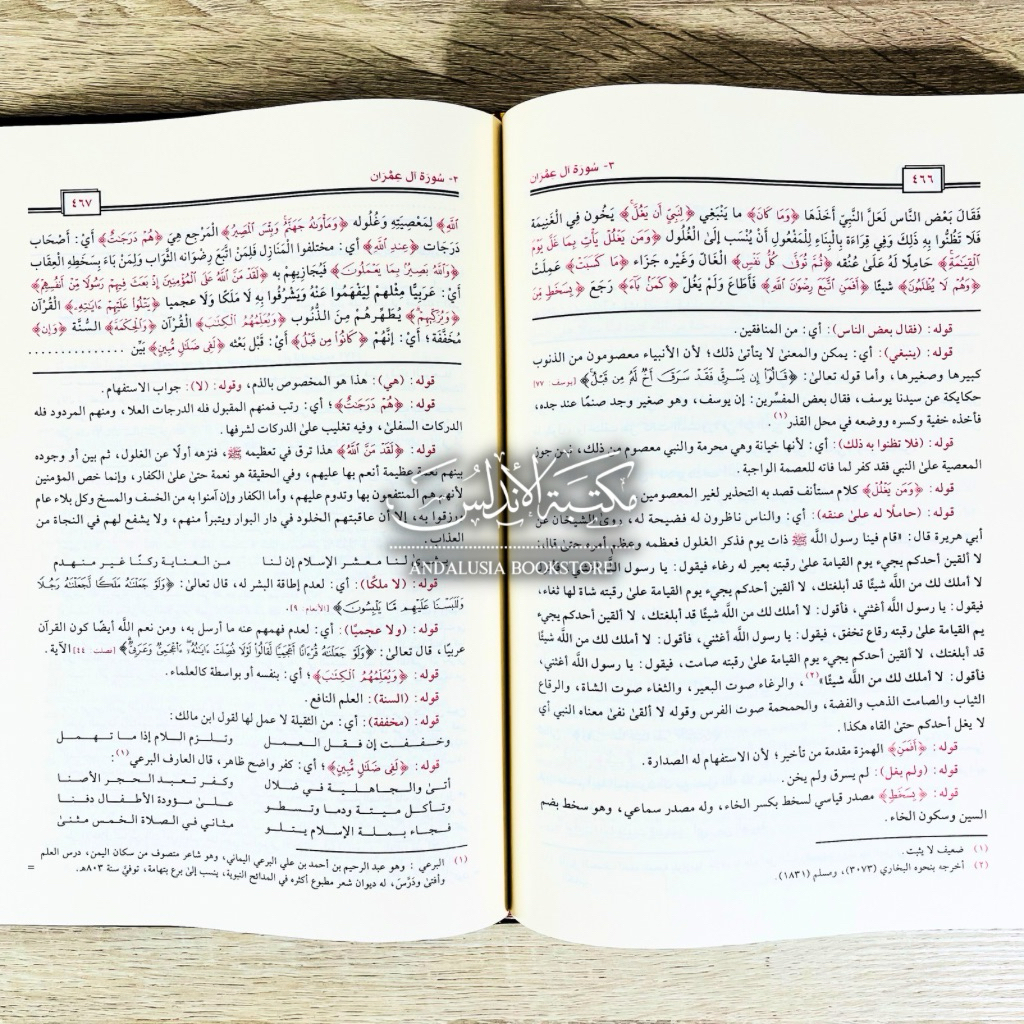 ٣- سُورَة آل عِمْرَان
٤٦٦
فَقَالَ بَعْض النَّاس لَعَلَّ النَّبِيّ أَخَذَهَا ﴿وَمَا كَانَ﴾ ما يَنْبَغِي ﴿لِنَبِيٍّ أَن يَغُلَّ﴾ يَخُون فِي الْغَنِيمَة
فَلَا تَظُنُّوا بِهِ ذَلِكَ وَفِي قِرَاءَة بِالْبِنَاءِ لِلْمَفْعُولِ أَنْ يُنْسَب إلَى الْغُلُول ﴿وَمَن يَغْلُلْ يَأْتِ بِمَا غَلَّ يَوْمَ
الْقِيَامَةِ﴾ حَامِلًا لَهُ عَلَى عُنُقه ﴿ثُمَّ تُوَفَّى كُلُّ نَفْسٍ﴾ الْغَالّ وَغَيْره جَزَاء ﴿مَا كَسَبَتْ﴾ عَمِلَتْ
﴿وَهُمْ لَا يُظْلَمُونَ﴾ شيئًا ﴿أَفَمَنِ اتَّبَعَ رِضْوَانَ اللَّهِ﴾ فَأَطَاعَ وَلَمْ يَغُلّ ﴿كَمَن بَاءَ﴾ رَجَعَ ﴿بِسَخَطٍ مِّنَ
قوله: (فقال بعض الناس): أي: من المنافقين.
قوله: (ينبغي): أي: يمكن والمعنى لا يتأتى ذلك؛ لأن الأنبياء معصومون من الذنوب
كبيرها وصغيرها، وأما قوله تعالى: ﴿قَالُوا إِن يَسْرِقْ فَقَدْ سَرَقَ أَخٌ لَّهُ مِن قَبْلُ﴾ [يوسف: ٧٧]
حكاية عن سيدنا يوسف، فقال بعض المفسِّرين: إن يوسف، وهو صغير وجد صنمًا عند جده،
فأخذه خفية وكسره ووضعه في محل القذر(١).
قوله: (فلا تظنوا به ذلك): أي: لأنها خيانة وهي محرمة والنبي معصوم من ذلك، فمن جوز
المعصية على النبي فقد كفر لما فاته للعصمة الواجبة.
قوله: ﴿وَمَن يَغْلُلْ﴾ كلام مستأنف قصد به التحذير لغير المعصومين
قوله: (حاملًا له على عنقه): أي: والناس ناظرون له فضيحة له، روى الشيخان عن
أبي هريرة قال: «قام فينا رسول اللَّه ﷺ ذات يوم فذكر الغلول فعظمه وعظم أمره حتى قال:
لا ألقين أحدكم يجيء يوم القيامة على رقبته بعير له رغاء فيقول: يا رسول اللَّه أغثني فأقول:
لا أملك لك من اللَّه شيئًا قد أبلغتك، لا ألقين أحدكم يجيء يوم القيامة على رقبته شاة لها ثغاء،
فيقول: يا رسول اللَّه أغثني، فأقول: لا أملك لك من اللَّه شيئًا قد أبلغتك، لا ألقين أحدكم يجيء
يم القيامة على رقبته رقاع تخفق، فيقول: يا رسول اللَّه أغثني، فأقول: لا أملك لك من اللَّه شيئًا
قد أبلغتك، لا ألقين أحدكم يجيء يوم القيامة على رقبته صامت، فيقول: يا رسول اللَّه أغثني،
فأقول: لا أملك لك من اللَّه شيئًا»(٢)، والرغاء صوت البعير، والثغاء صوت الشاة، والرقاع
الثياب والصامت الذهب والفضة، والحمحمة صوت الفرس وقوله لا ألقى نفى معناه النبي أي
لا يغل أحدكم حتى القاه هكذا.
قوله: ﴿أَفَمَنِ﴾ الهمزة مقدمة من تأخير؛ لأن الاستفهام له الصدارة.
قوله: (ولم يغل): لم يسرق ولم يخن.
قوله: ﴿بِسَخَطٍ﴾ مصدر قياسي لسخط بكسر الخاء، وله مصدر سماعي، وهو سخط بضم
السين وسكون الخاء.
(١) ضعيف لا يثبت.
(٢) أخرجه بنحوه البخاري (٣٠٧٣)، ومسلم (١٨٣١).
٢- سُورَة آل عِمْرَان
٤٦٧
اللَّهِ﴾ لِمَعْصِيَتِهِ وَغُلُوله ﴿وَمَأْوَاهُ جَهَنَّمُ وَبِئْسَ الْمَصِيرُ﴾ الْمَرْجِع هِيَ ﴿هُمْ دَرَجَاتٌ﴾ أَيْ: أَصْحَاب
دَرَجَات ﴿عِندَ اللَّهِ﴾ أي: مختلفوا الْمَنَازِل فَلِمَنْ اتَّبَعَ رِضْوَانه الثَّوَاب وَلِمَنْ بَاءَ بِسَخَطِهِ الْعِقَاب
﴿وَاللَّهُ بَصِيرٌ بِمَا يَعْمَلُونَ﴾ فَيُجَازِيهِمْ به ﴿لَقَدْ مَنَّ اللَّهُ عَلَى الْمُؤْمِنِينَ إِذْ بَعَثَ فِيهِمْ رَسُولًا مِّنْ أَنفُسِهِمْ﴾
أَيْ: عَرَبِيًّا مِثْلهمْ لِيَفْهَمُوا عَنْهُ وَيَشْرُفُوا بِهِ لَا مَلَكًا وَلَا عجميا ﴿يَتْلُوا عَلَيْهِمْ آيَاتِهِ﴾ الْقُرْآن
﴿وَيُزَكِّيهِمْ﴾ يُطَهِّرهُمْ مِنَ الذُّنُوب ﴿وَيُعَلِّمُهُمُ الْكِتَابَ﴾ الْقُرْآن ﴿وَالْحِكْمَةَ﴾ السُّنَّة ﴿وَإِن﴾
مُخَفَّفَة؛ أَيْ: إِنَّهُمْ ﴿كَانُوا مِن قَبْلُ﴾ أَيْ: قَبْل بَعْثه ﴿لَفِي ضَلَالٍ مُّبِينٍ﴾ بَيِّن ................
قوله: (هي): هذا هو المخصوص بالذم، وقوله: (لا): جواب الاستفهام.
قوله: ﴿هُمْ دَرَجَاتٌ﴾؛ أي: رتب فمنهم المقبول فله الدرجات العلا، ومنهم المردود فله
الدركات السفلى، وفيه تغليب على الدركات لشرفها.
قوله: ﴿لَقَدْ مَنَّ اللَّهُ﴾ هذا ترق في تعظيمه ﷺ، فنزهه أولًا عن الغلول، ثم بين أو وجوده
بينهم نعمة عظيمة أنعم بها عليهم، وفي الحقيقة هو نعمة حتى على الكفار، وإنما خص المؤمنين
لأنهم هم المنتفعون بها وتدوم عليهم، وأما الكفار وإن آمنوا به من الخسف والمسخ وكل بلاء عام
ورزقوا به، إلا أن عاقبتهم الخلود في دار البوار ويتبرأ منهم، ولا يشفع لهم في النجاة من
العذاب.
بشرى لنا معشر الإسلام إن لنا من العناية ركنًا غير منهدم
قوله: (لا ملكًا): أي: لعدم إطاقة البشر له، قال تعالى: ﴿وَلَوْ جَعَلْنَاهُ مَلَكًا لَّجَعَلْنَاهُ رَجُلًا
وَلَلَبَسْنَا عَلَيْهِم مَّا يَلْبِسُونَ﴾ [الأنعام: ٩].
قوله: (ولا عجميًا): أي: لعدم فهمهم عنه ما أرسل به، ومن نعم اللَّه أيضًا كون القرآن
عربيًا، قال تعالى: ﴿وَلَوْ جَعَلْنَاهُ قُرْآنًا أَعْجَمِيًّا لَّقَالُوا لَوْلَا فُصِّلَتْ آيَاتُهُ أَأَعْجَمِيٌّ وَعَرَبِيٌّ﴾ [فصلت: ٤٤] الآية.
قوله: ﴿وَيُعَلِّمُهُمُ الْكِتَابَ﴾؛ أي: بنفسه أو بواسطة كالعلماء.
قوله: (السنة): العلم النافع.
قوله: (مخففة): أي: من الثقيلة لا عمل لها لقول ابن مالك:
وخففت إن فقل العمل وتلزم اللام إذا ما تهمل
قوله: ﴿لَفِي ضَلَالٍ مُّبِينٍ﴾؛ أي: كفر واضح ظاهر، قال العارف البرعي(١):
أتى والجاهلية في ضلال وكفر تعبد الحجر الأصنا
وتأكل ميتة ودما وتسطو على موؤدة الأطفال دفنا
فجاء بملة الإسلام يتلو مثاني في الصلاة الخمس مثنى
(١) البرعي: وهو عبد الرحيم بن أحمد بن علي البرعي اليماني، وهو شاعر متصوف من سكان اليمن، درس العلم
وأفتى ودَرَّسَ، له ديوان شعر مطبوع أكثره في المدائح النبوية، ينسب إلى برع بتهامة، توفي سنة ٨٠٣هـ. =
مكتبة الأندلس
ANDALUSIA BOOKSTORE